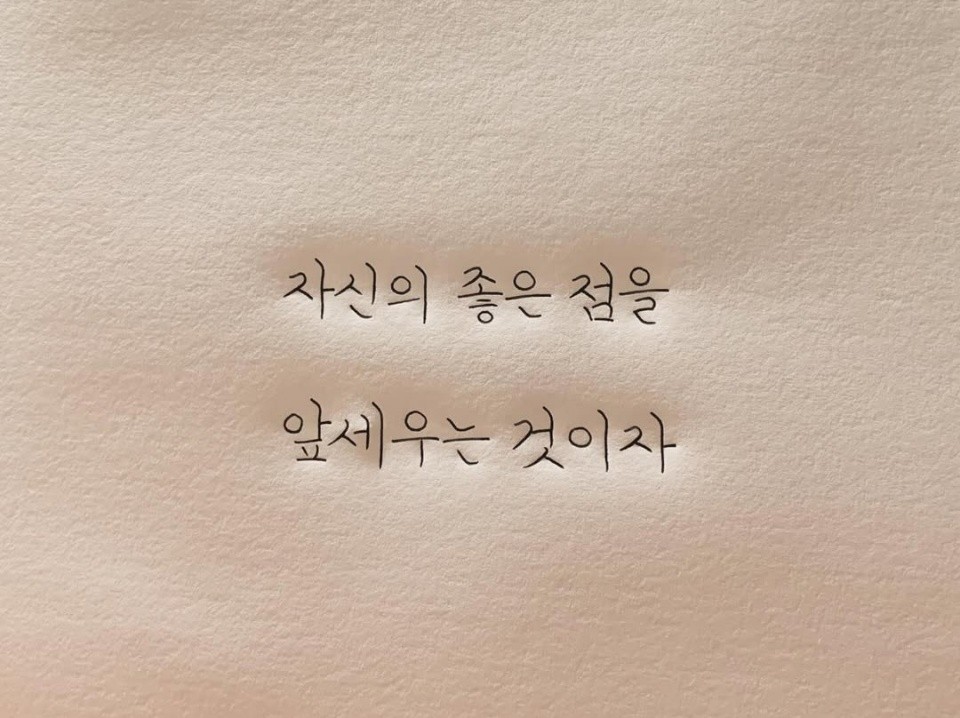 자신의 좋은 점을
앞세우는 것이자